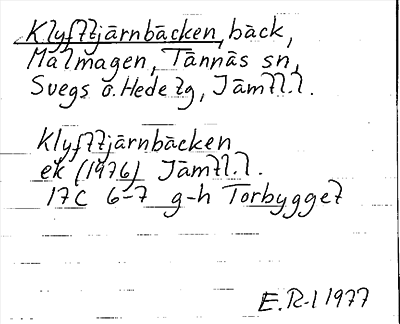 Klyftjärnbäcken, bäck,
Malmagen, Tännäs sn,
Svegs o. Hede tg, Jämtl.l.
Klyftjärnbäcken
ek (1976) Jämtl.l.
17C 6-7 g-h Torbygget
E.R-l 1977